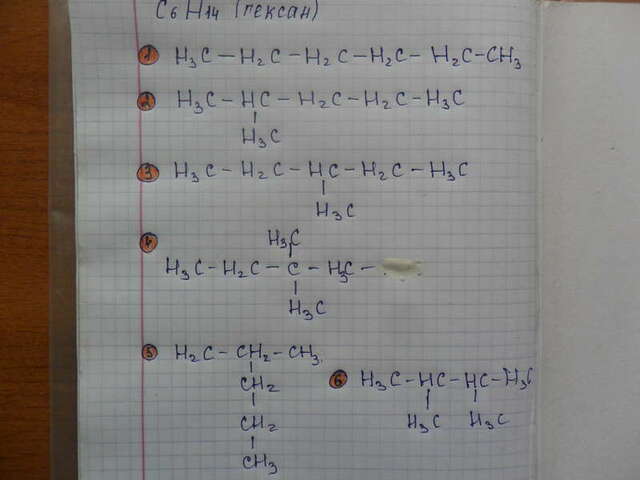 C6H14 (гексан)
1 H3C - H2C - H2C - H2C - H2C - CH3
2 H3C - HC - H2C - H2C - H3C
H3C
3 H3C - H2C - HC - H2C - H3C
H3C
4 H3C
H3C - H2C - C - H3C -
H3C
5 H2C - CH2 - CH3
CH2
CH2
CH3
6 H3C - HC - HC - H3C
H3C H3C